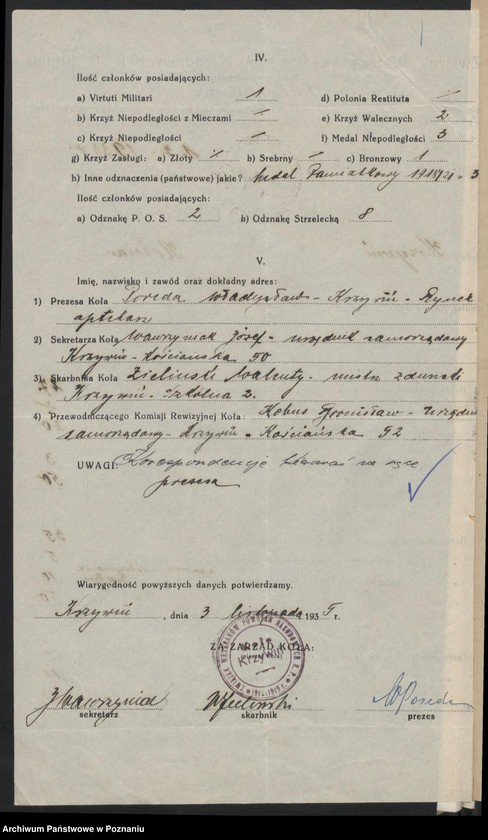 IV.
Ilość członków posiadających:
a) Virtuti Militari 1 d) Polonia Restituta /
b) Krzyż Niepodległości z Mieczami / e) Krzyż Walecznych 2
c) Krzyż Niepodległości / f) Medal Niepodległości 3
g) Krzyż Zasługi: a) Złoty / b) Srebrny / c) Bronzowy 1
h) Inne odznaczenia (państwowe) jakie? Medal Pamiątkowy 1918/21 - 3
Ilość członków posiadających:
a) Odznakę P. O. S. 2 b) Odznakę Strzelecką 8
V.
Imię, nazwisko i zawód oraz dokładny adres:
1) Prezesa Koła Poreda Władysław - Krzywiń - Rynek
aptekarz
2) Sekretarza Koła Wawrzyniak Józef - urzędnik samorządowy
Krzywiń - Kościańska 50
3) Skarbnika Koła Zieliński Walenty - mistrz zduński
Krzywiń - Szkolna 2.
4) Przewodniczącego Komisji Rewizyjnej Koła: Kobus Bronisław - Urzędn
samorządowy - Krzywiń - Kościańska 52
UWAGI: Korespondencję kierować na ręce
prezesa
Wiarygodność powyższych danych potwierdzamy.
Krzywiń, dnia 3 listopada 1935 r.
ZA ZARZĄD KOŁA:
Krzywiń
1914-1919 r.
J Wawrzyniak WZieliński WPoreda
sekretarz skarbnik prezes
Archiwum Państwowe w Poznaniu